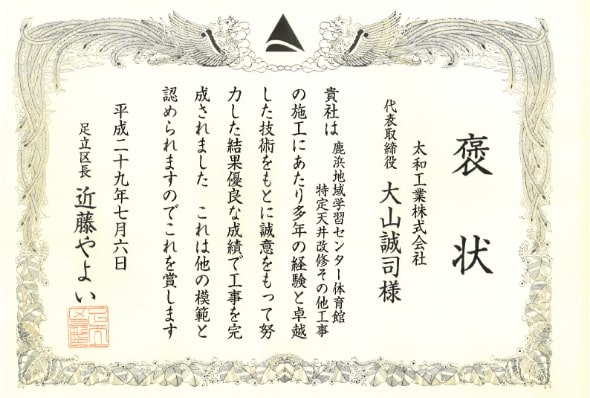 褒状
太和工業株式会社
代表取締役 大山誠司様
貴社は 鹿浜地域学習センター体育館
特定天井改修その他工事
の施工にあたり多年の経験と卓越
した技術をもとに誠意をもって努
力した結果優良な成績で工事を完
成されました これは他の模範と
認められますのでこれを賞します
平成二十九年七月六日
足立区長 近藤やよい